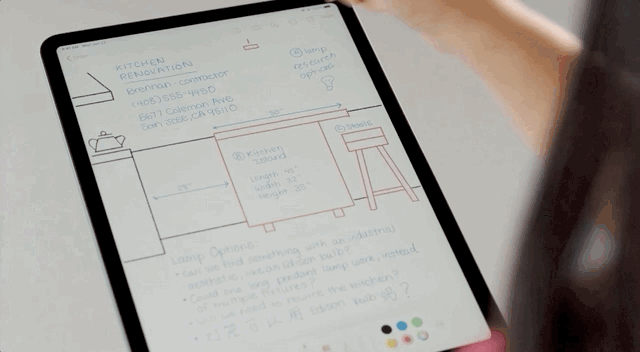 KITCHEN
RENOVATION
Brennan - contractor
(408) 555-4450
5677 Coleman Ave
San Jose, CA 95110
lamp
research
options
Stools
Kitchen
Island
Length
Width
Height
Lamp Options:
• Can we find something with an industrial
aesthetic like an Edison bulb?
• Could one long pendant lamp work, instead
of multiple fixtures?
we need to rewire the kitchen?
Edison bulb